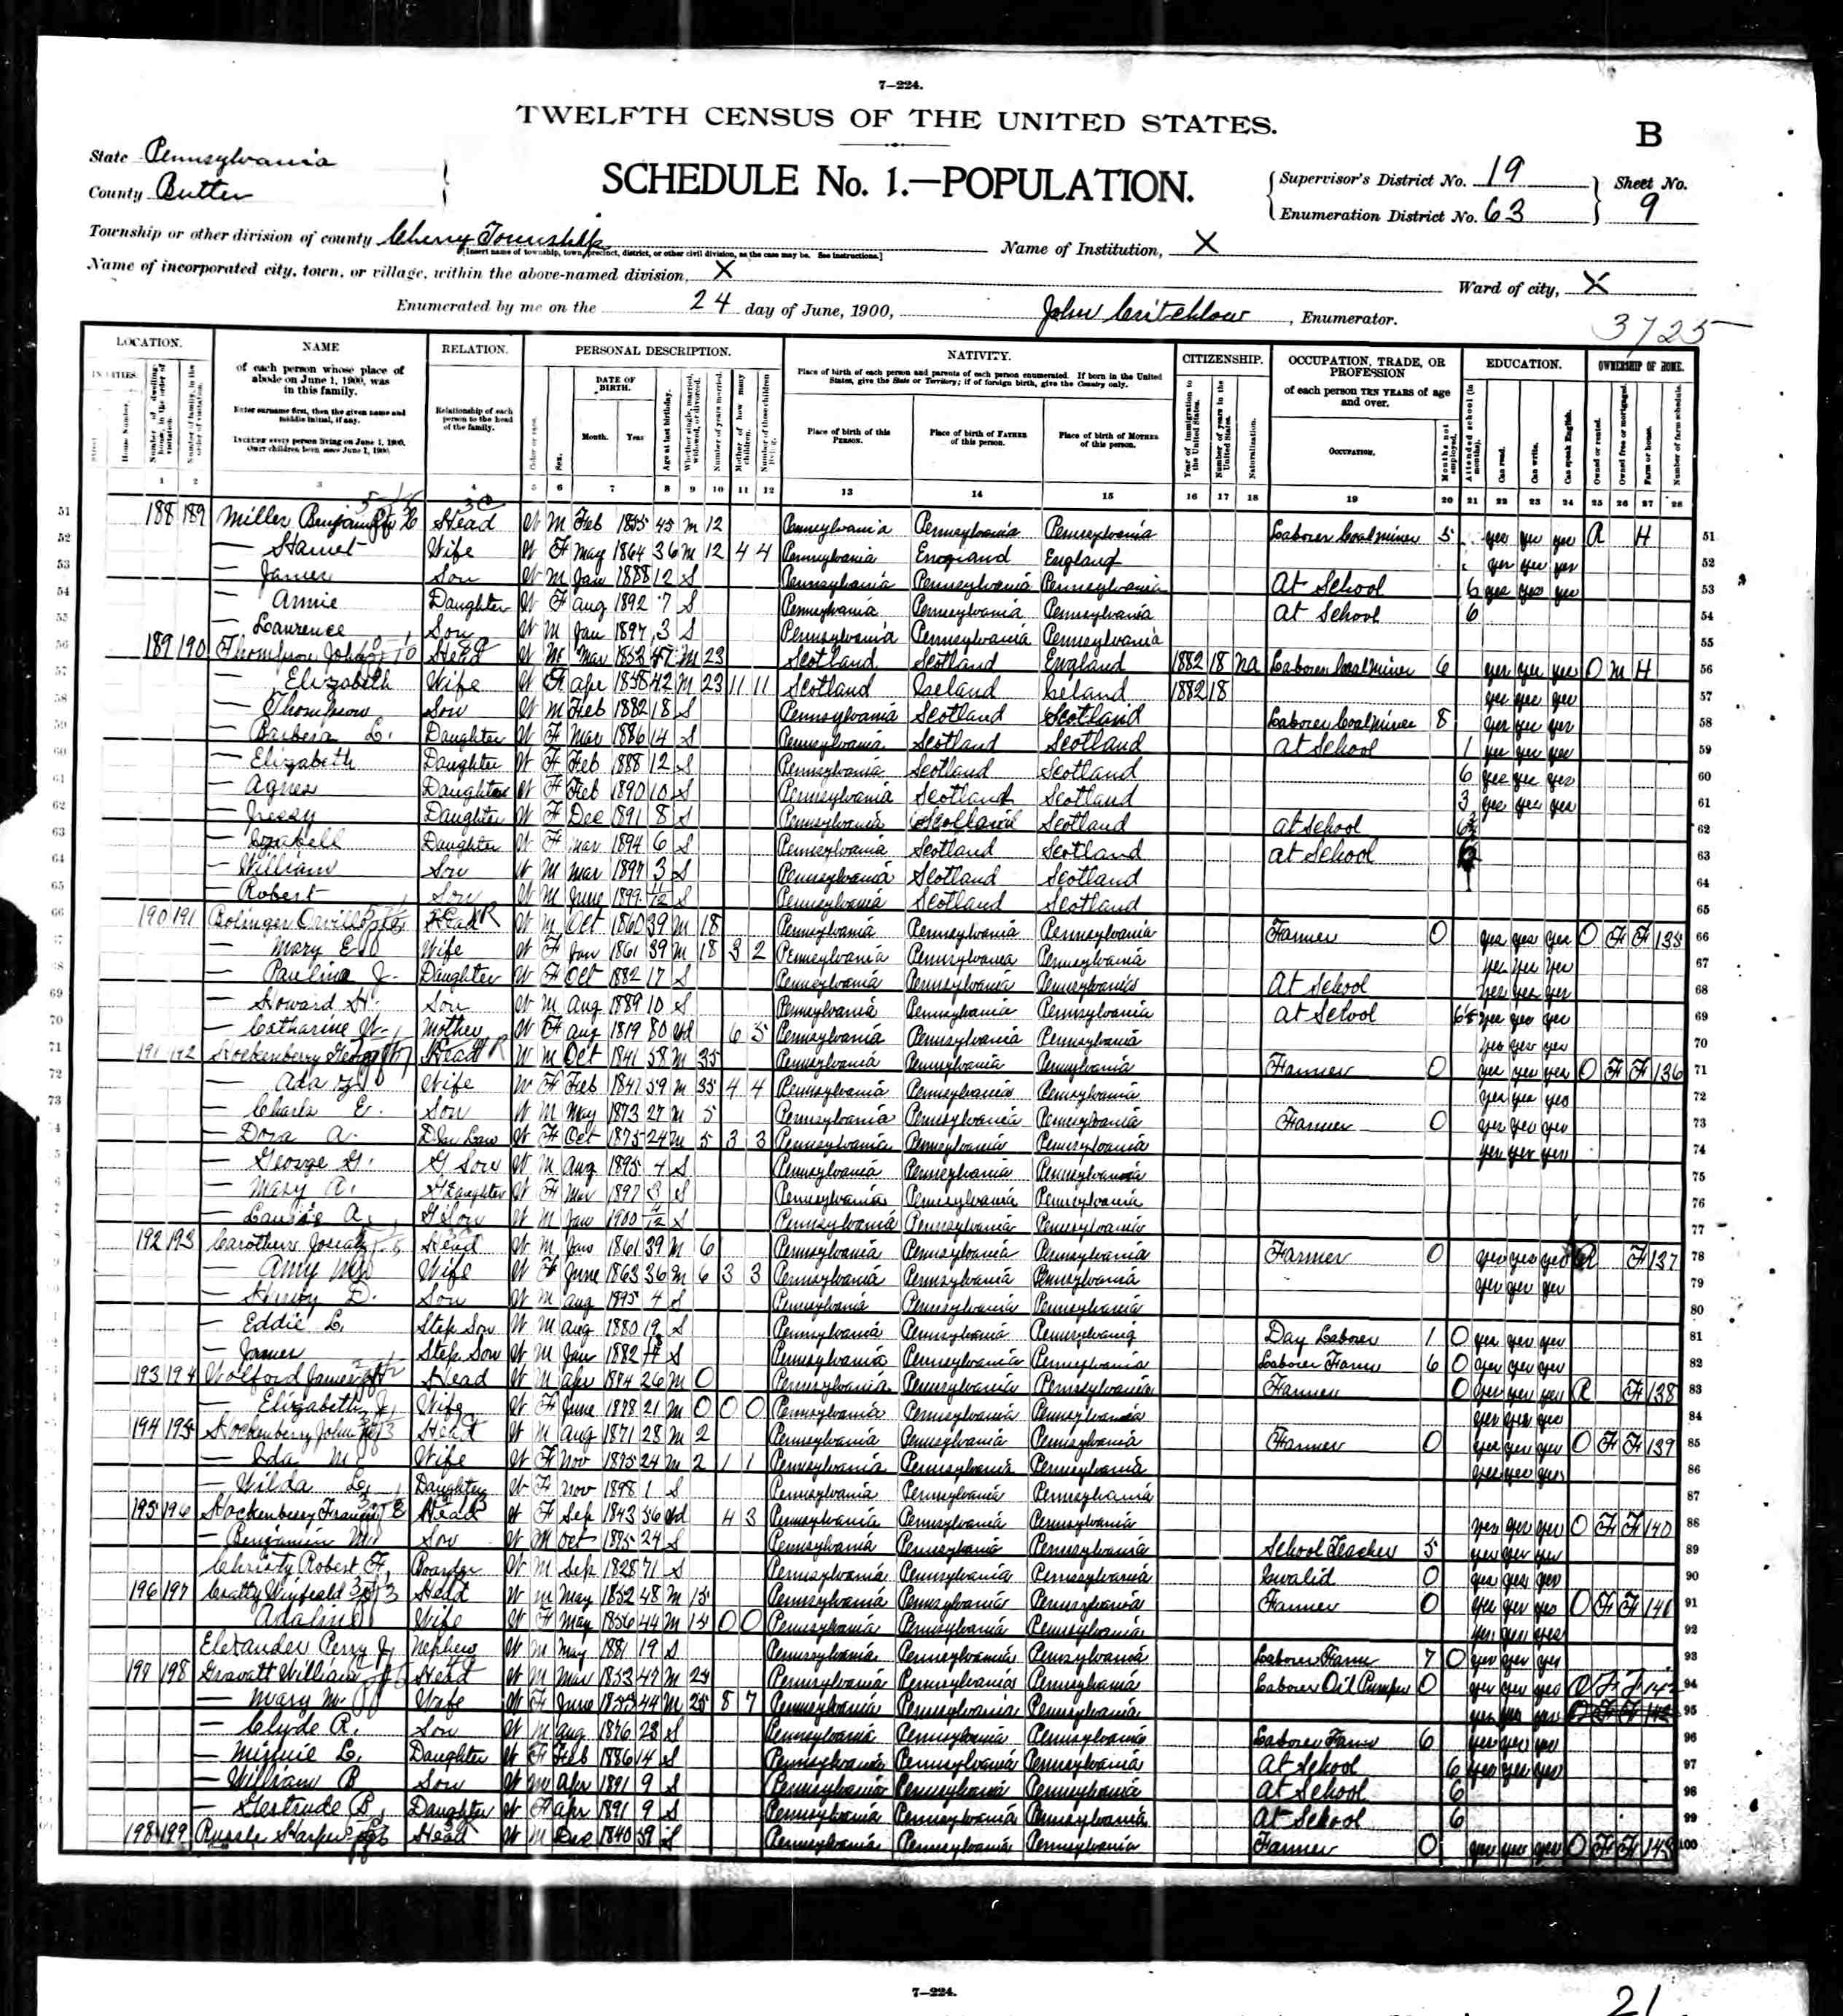 7—224.
TWELFTH CENSUS OF THE UNITED STATES.
B
State Pennsylvania
County Butler
SCHEDULE No. 1.—POPULATION.
Supervisor's District No. 19
Enumeration District No. 63
Sheet No.
9
Township or other division of county Cherry Township
[Insert name of township, town, precinct, district, or other civil division, as the case may be. See instructions.]
Name of Institution, X
Name of incorporated city, town, or village, within the above-named division, X
Ward of city, X
Enumerated by me on the 24 day of June, 1900, John Critchlow, Enumerator.
3725
LOCATION. NAME RELATION. PERSONAL DESCRIPTION. NATIVITY. CITIZENSHIP. OCCUPATION, TRADE, OR PROFESSION EDUCATION. OWNERSHIP OF HOME.
of each person whose place of abode on June 1, 1900, was in this family.
Enter surname first, then the given name and middle initial, if any.
INCLUDE every person living on June 1, 1900.
OMIT children born since June 1, 1900.
Relationship of each person to the head of the family.
DATE OF BIRTH.
Month. Year
Place of birth of each person and parents of each person enumerated. If born in the United States, give the State or Territory; if of foreign birth, give the Country only.
Place of birth of this PERSON. Place of birth of FATHER of this person. Place of birth of MOTHER of this person.
of each person TEN YEARS of age and over.
OCCUPATION.
1 2 3 4 5 6 7 8 9 10 11 12 13 14 15 16 17 18 19 20 21 22 23 24 25 26 27 28
51 188 189 Miller Benjamin Head W M Feb 1855 45 M 12 Pennsylvania Pennsylvania Pennsylvania Laborer Coal miner 5 yes yes yes R H 51
52 — Harriet Wife W F May 1864 36 M 12 4 4 Pennsylvania England England yes yes yes 52
53 — James Son W M Jan 1888 12 S Pennsylvania Pennsylvania Pennsylvania At School 6 yes yes yes 53
54 — Annie Daughter W F Aug 1892 7 S Pennsylvania Pennsylvania Pennsylvania At School 6 54
55 — Laurence Son W M Jan 1897 3 S Pennsylvania Pennsylvania Pennsylvania 55
56 189 190 Thompson John Head W M Mar 1853 47 M 23 Scotland Scotland England 1882 18 Na Laborer Coal miner 6 yes yes yes O M H 56
57 — Elizabeth Wife W F Apr 1858 42 M 23 11 11 Scotland Ireland Ireland 1882 18 yes yes yes 57
58 — Thompson Son W M Feb 1882 18 S Pennsylvania Scotland Scotland Laborer Coal miner 8 yes yes yes 58
59 — Barbera L. Daughter W F Mar 1886 14 S Pennsylvania Scotland Scotland At School 1 yes yes yes 59
60 — Elizabeth Daughter W F Feb 1888 12 S Pennsylvania Scotland Scotland 6 yes yes yes 60
61 — Agnes Daughter W F Feb 1890 10 S Pennsylvania Scotland Scotland 3 yes yes yes 61
62 — Jessy Daughter W F Dec 1891 8 S Pennsylvania Scotland Scotland At School 62
63 — Izabell Daughter W F Mar 1894 6 S Pennsylvania Scotland Scotland At School 63
64 — William Son W M Mar 1897 3 S Pennsylvania Scotland Scotland 64
65 — Robert Son W M June 1899 11/12 S Pennsylvania Scotland Scotland 65
66 190 191 Bolinger Orvill Head W M Oct 1860 39 M 18 Pennsylvania Pennsylvania Pennsylvania Farmer 0 yes yes yes O F F 135 66
— Mary E Wife W F Jan 1861 39 M 18 3 2 Pennsylvania Pennsylvania Pennsylvania yes yes yes 67
— Paulina J. Daughter W F Oct 1882 17 S Pennsylvania Pennsylvania Pennsylvania At School yes yes yes 68
69 — Howard H. Son W M Aug 1889 10 S Pennsylvania Pennsylvania Pennsylvania At School yes yes yes 69
70 — Catharine W. Mother W F Aug 1819 80 Wd 6 5 Pennsylvania Pennsylvania Pennsylvania yes yes yes 70
71 191 192 Hockenberry George Head W M Oct 1841 58 M 35 Pennsylvania Pennsylvania Pennsylvania Farmer 0 yes yes yes O F F 136 71
72 — Ada Wife W F Feb 1841 59 M 35 4 4 Pennsylvania Pennsylvania Pennsylvania yes yes yes 72
73 — Charls E. Son W M May 1873 27 M 5 Pennsylvania Pennsylvania Pennsylvania Farmer 0 yes yes yes 73
— Dora A. D in Law W F Oct 1875 24 M 5 3 3 Pennsylvania Pennsylvania Pennsylvania yes yes yes 74
— George G. G Son W M Aug 1895 4 S Pennsylvania Pennsylvania Pennsylvania 75
— Mary A. G Daughter W F Mar 1897 3 S Pennsylvania Pennsylvania Pennsylvania 76
— A. G Son W M Jan 1900 4/12 S Pennsylvania Pennsylvania Pennsylvania 77
192 193 Carothers Head W M Jan 1861 39 M 6 Pennsylvania Pennsylvania Pennsylvania Farmer 0 yes yes yes R F 137 78
— Amy Wife W F June 1863 36 M 6 3 3 Pennsylvania Pennsylvania Pennsylvania yes yes yes 79
— Henry D. Son W M Aug 1895 4 S Pennsylvania Pennsylvania Pennsylvania 80
— Eddie L. Step Son W M Aug 1880 19 S Pennsylvania Pennsylvania Pennsylvania Day Laborer 1 0 yes yes yes 81
— James Step Son W M Jan 1882 S Pennsylvania Pennsylvania Pennsylvania Laborer Farm 6 0 yes yes yes 82
193 194 Wolford James Head W M Apr 1874 26 M 0 Pennsylvania Pennsylvania Pennsylvania Farmer 0 yes yes yes R F 138 83
— Elizabeth J. Wife W F June 1878 21 M 0 0 0 Pennsylvania Pennsylvania Pennsylvania yes yes yes 84
194 195 Hockenberry John Head W M Aug 1871 28 M 2 Pennsylvania Pennsylvania Pennsylvania Farmer 0 yes yes yes O F F 139 85
— Ida M Wife W F Nov 1875 24 M 2 1 1 Pennsylvania Pennsylvania Pennsylvania yes yes yes 86
— Wilda Daughter W F Nov 1898 1 S Pennsylvania Pennsylvania Pennsylvania 87
195 196 Hockenberry Head W F Sep 1843 56 Wd 4 3 Pennsylvania Pennsylvania Pennsylvania yes yes yes O F F 140 88
— Benjamin M. Son W M Oct 1875 24 S Pennsylvania Pennsylvania Pennsylvania School Teacher 5 yes yes yes 89
Christy Robert F. Boarder W M Sep 1828 71 S Pennsylvania Pennsylvania Pennsylvania Invalid 0 yes yes yes 90
196 197 Cratty Winfield Head W M May 1852 48 M 15 Pennsylvania Pennsylvania Pennsylvania Farmer 0 yes yes yes O F F 141 91
Adaline Wife W F May 1856 44 M 15 0 0 Pennsylvania Pennsylvania Pennsylvania yes yes yes 92
Elexander Perry J. Nephew W M May 1881 19 S Pennsylvania Pennsylvania Pennsylvania Laborer Farm 7 0 yes yes yes 93
197 198 Gravatt William Head W M Mar 1853 47 M 25 Pennsylvania Pennsylvania Pennsylvania Laborer Oil Pumper 0 yes yes yes O F F 142 94
— Mary M. Wife W F June 1855 44 M 25 8 7 Pennsylvania Pennsylvania Pennsylvania yes yes yes 95
— Clyde R. Son W M Aug 1876 23 S Pennsylvania Pennsylvania Pennsylvania Laborer Farm 6 yes yes yes 96
— Minnie L. Daughter W F Feb 1886 14 S Pennsylvania Pennsylvania Pennsylvania At School 6 yes yes yes 97
— William B Son W M Apr 1891 9 S Pennsylvania Pennsylvania Pennsylvania At School 6 98
— Gertrude B. Daughter W F Apr 1891 9 S Pennsylvania Pennsylvania Pennsylvania At School 6 99
198 199 Harper Head W M Dec 1840 59 S Pennsylvania Pennsylvania Pennsylvania Farmer 0 yes yes yes O F F 143 100
7—224.
21